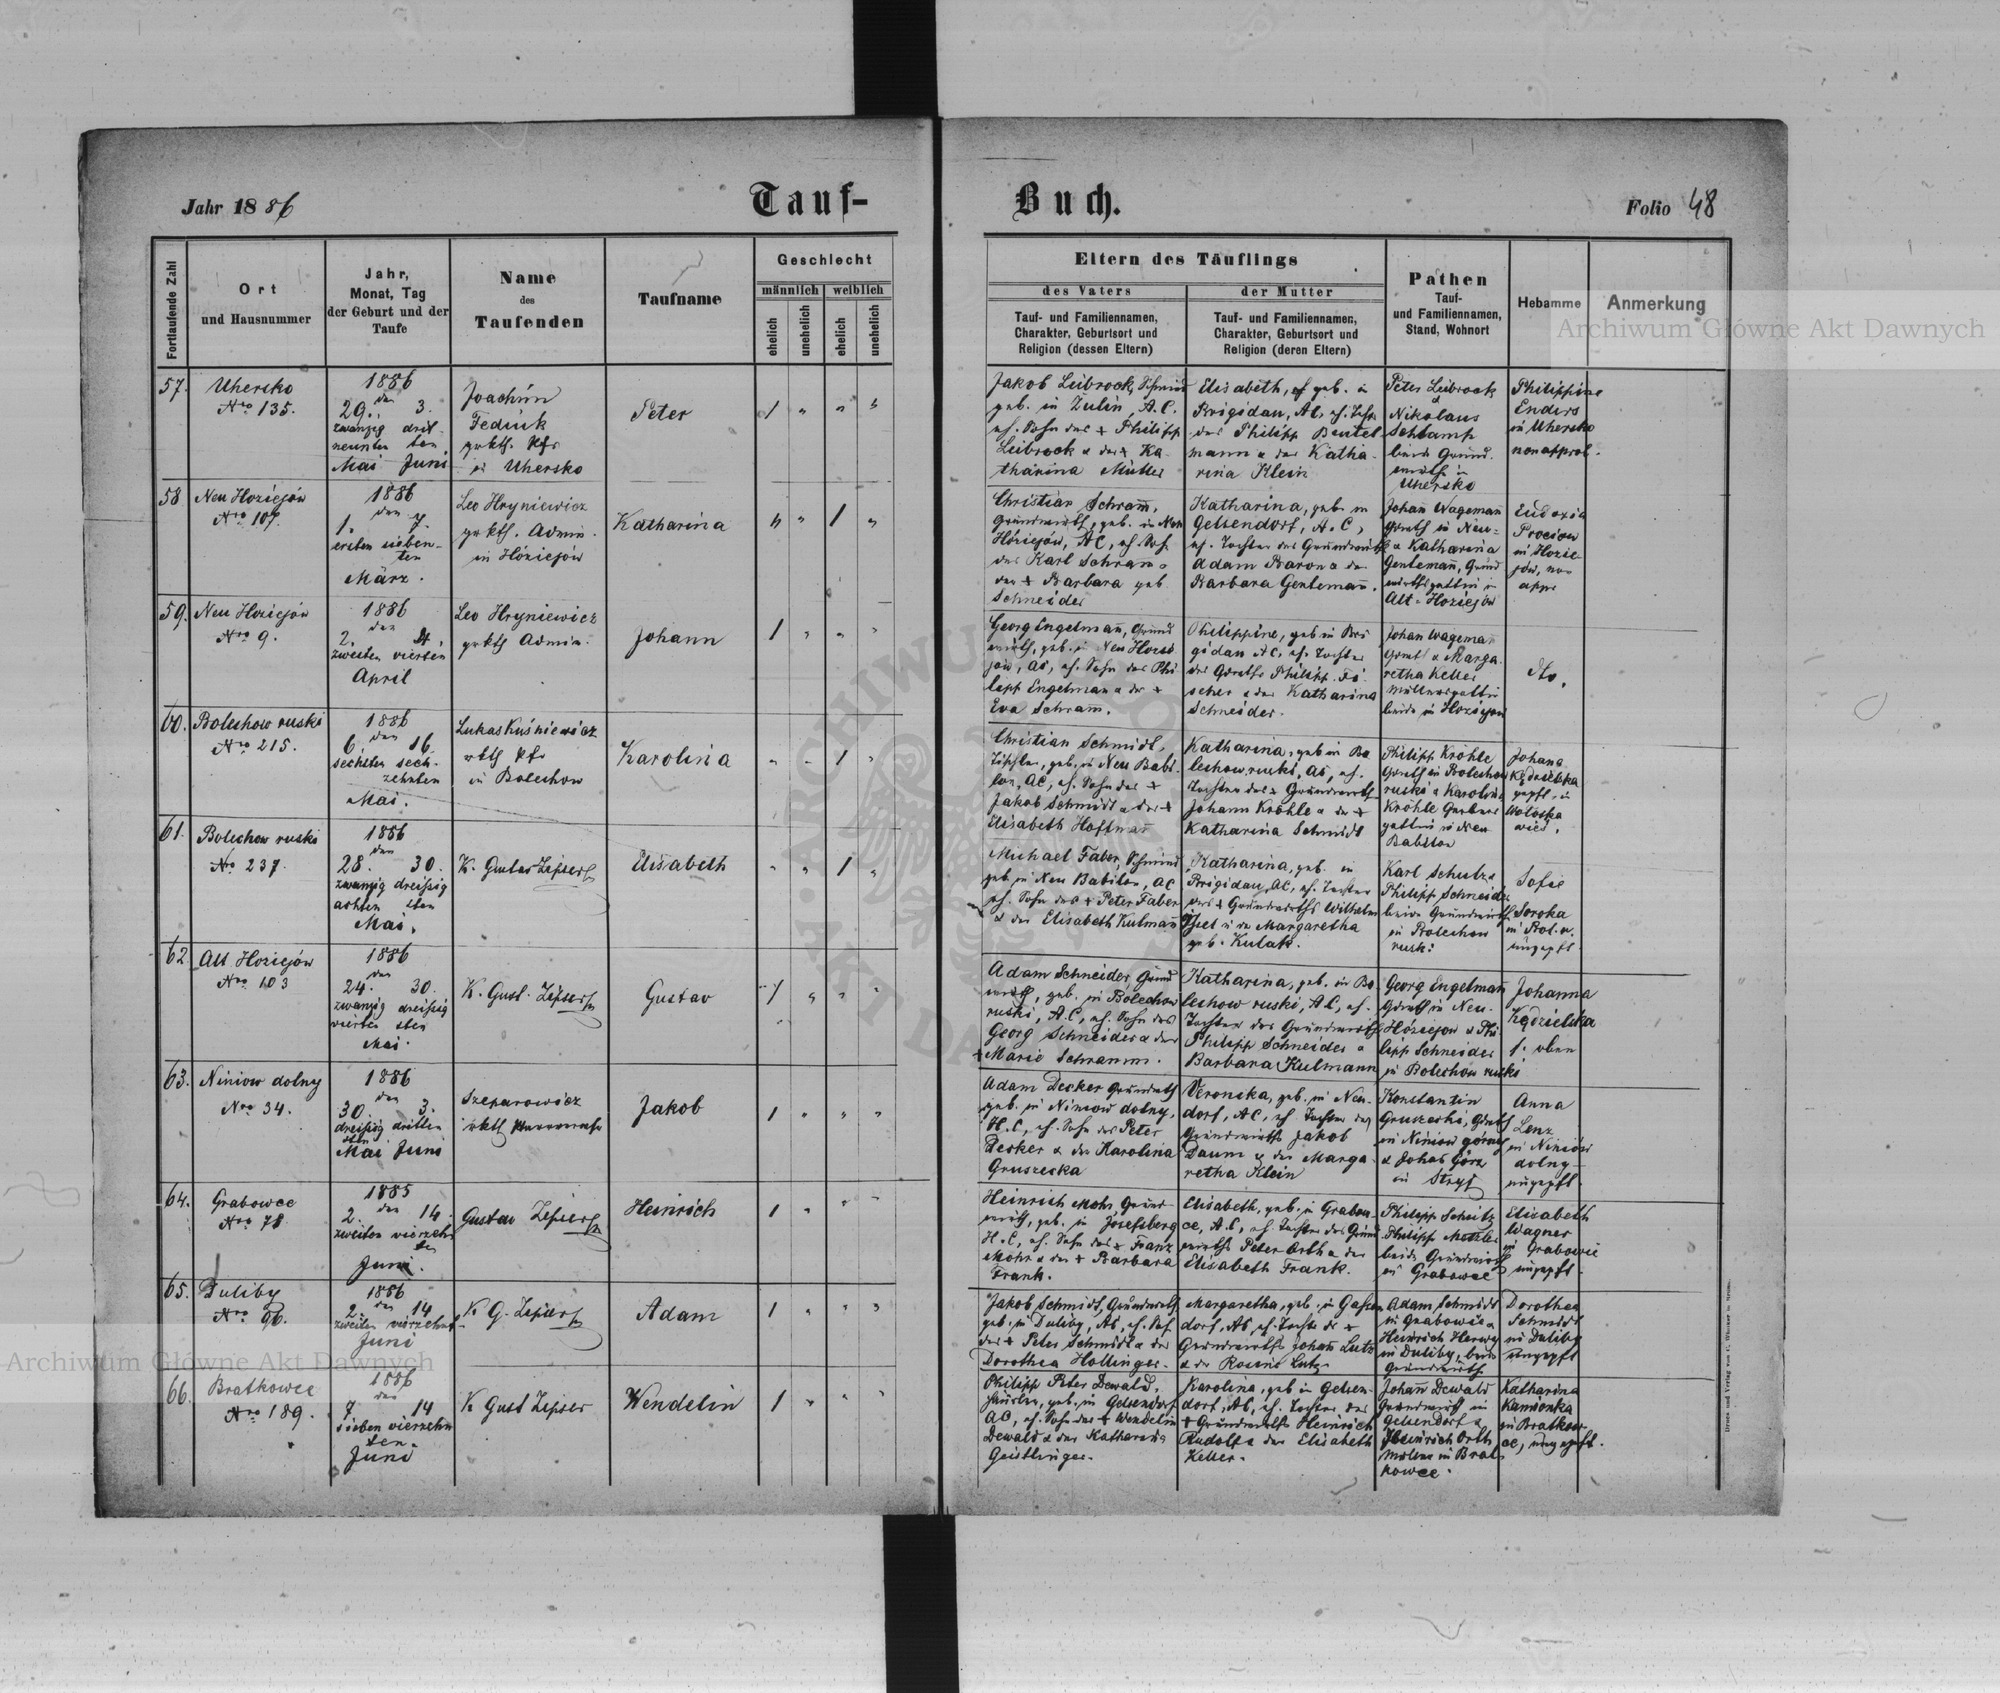 Jahr 1886
Tauf-
Buch.
Folio 48
Fortlaufende Zahl
Ort
und Hausnummer
Jahr,
Monat, Tag
der Geburt und der
Taufe
Name
des
Taufenden
Taufname
Geschlecht
männlich
weiblich
ehelich
unehelich
ehelich
unehelich
Eltern des Täuflings
des Vaters
Tauf- und Familiennamen,
Charakter, Geburtsort und
Religion (dessen Eltern)
der Mutter
Tauf- und Familiennamen,
Charakter, Geburtsort und
Religion (deren Eltern)
Pathen
Tauf-
und Familiennamen,
Stand, Wohnort
Hebamme
Anmerkung
Archiwum Główne Akt Dawnych
57.
Uhersko
Nro 135.
1886
den
29. 3.
zwanzig drit-
neunten ten
Mai Juni
Joachim
Fediuk
grkth. Pfr
in Uhersko
Peter
1 " " "
Jakob Leibrock, Schmied
geb. in Zulin, A.C.
eh. Sohn des + Philipp
Leibrock u der + Ka-
tharina Müller
Elisabeth, geb. in
Brigidau, AC, eh. Tocht
des Philipp Beutel
mann u der Katha-
rina Klein
Peter Leibrock
Nikolaus
Schlamp
beide Grund-
wirthe in
Uhersko
Philippine
Enders
in Uhersko
non approb.
58
Neu Hoziejów
Nro 107.
1886
den
1. 7.
ersten sieben-
ten
März.
Leo Hryniewicz
grkth. Admin.
in Hóziejow
Katharina
" " 1 "
Christian Schram,
Grundwirth, geb. in Neu
Hóziejów, AC, eh. Soh.
des Karl Schram u
der + Barbara geb
Schneider
Katharina, geb. in
Gelsendorf, A.C,
eh. Tochter des Grundwirth
Adam Baron u der
Barbara Gentemann.
Johan Wagemann
Grwth in Neu-
u Katharina
Gentemann, Grund
wirthsgattin in
Alt-Hoziejów
Eudoxia
Procion
in Hozie
jów, non
appr
59.
Neu Hoziejów
Nro 9.
1886
den
2. 4.
zweiten vierten
April
Leo Hryniewicz
grkth Admin.
Johann
1 " " "
Georg Engelmann, Grund
wirth, geb. in Neu Hozie
jow, AC, eh. Sohn des Phi
lipp Engelman u der +
Eva Schram.
Philippine, geb in Bri
gidau AC, eh. Tochter
des Grwths Philipp Fi-
scher u der Katharina
Schneider.
Johan Wageman
Grwth u Marga-
retha Keller
Müllersgattin
beide in Hoziejow
dto.
60.
Bolechow ruski
Nro 215.
1886
den
6. 16.
sechsten sech-
zehnten
Mai.
Lukas Kuśniewicz
rkth Pfr
in Bolechow
Karolina
" " 1 "
Christian Schmidt,
Tischler, geb. in Neu Babi-
lon, AC, eh. Sohn des +
Jakob Schmidt u der +
Elisabeth Hoffmann
Katharina, geb in Bo
lechow ruski, AC, eh.
Tochter des + Grundwirths
Johann Kröhle u der +
Katharina Schmidt
Philipp Kröhle
Grwth in Bolechow
ruski u Karolina
Kröhle
gattin in Neu
Babilon
Johana
Kędzielska
gepft. in
Wołoska
wieś.
61.
Bolechow ruski
Nro 237.
1886
den
28. 30.
zwanzig dreißig
achten sten
Mai.
K. Gustav Zipser
Elisabeth
" " 1 "
Michael Faber, Schmied
geb in Neu Babilon, AC
eh. Sohn des + Peter Faber
u der Elisabeth Kulmann
Katharina, geb. in
Brigidau, AC, eh. Tochter
des + Grundwirths Wilhelm
Thiel u der Margaretha
geb. Kulak.
Karl Schutz u
Philipp Schneider
beide Grundwirthe
in Bolechow
ruski
Sofie
Soroka
in Bol. r.
ungepft.
62
Alt Hoziejów
Nro 103
1886
den
24. 30.
zwanzig dreißig
vierten sten
Mai.
K. Gust. Zipser
Gustav
1 " " "
Adam Schneider, Grund
wirth, geb. in Bolechow
ruski, A.C, eh. Sohn des
Georg Schneider u der
+ Marie Schramm.
Katharina, geb. in Bo
lechow ruski, A.C, eh.
Tochter des Grundwirths
Philipp Schneider u
Barbara Kulmann
Georg Engelmann
Grwth in Neu-
Hóziejow u Phi
lipp Schneider
in Bolechow ruski
Johanna
Kędzielska
s. oben
63.
Niniow dolny
Nro 34.
1886
den
30. 3.
dreißig dritten
sten
Mai Juni
Szeparowicz
rkth
Jakob
1 " " "
Adam Decker Grundwth
geb. in Niniow dolny,
H.C, eh. Sohn des Peter
Decker u der Karolina
Gruszecka
Veronika, geb. in Neu-
dorf, AC, eh Tochter des
Grundwirths Jakob
Daum u der Marga-
retha Klein
Konstantin
Gruszecki, Grwth
in Niniow górny
u Johan Görz
in Stryj
Anna
Lenz
in Niniów
dolny
ungepft.
64.
Grabowce
Nro 78
1885
den
2. 14.
zweiten vierzehn
ten
Juni.
Gustav Zipser
Heinrich
1 " " "
Heinrich Mohr, Grund-
wirth, geb. in Josefsberg
H.C, eh. Sohn des + Franz
Mohr u der + Barbara
Frank.
Elisabeth, geb. in Grabow-
ce, A.C, eh. Tochter des Grund
wirths Peter Orth u der
Elisabeth Frank.
Philipp Schütz
Philipp Metzler
beide Grundwirth
in Grabowce
Elisabeth
Wagner
in Grabowce
ungepft.
65.
Duliby
Nro 96.
1886
den
2. 14
zweiten vierzehnt
Juni
K. G. Zipser
Adam
1 " " "
Jakob Schmidt, Grundwirth
geb. in Duliby, AC, eh. Soh
des + Peter Schmidt u der
Dorothea Hollinger.
Margaretha, geb. in Gelsen
dorf, AC, eh. Tocht des +
Grundwirths Johann Lutz
u der Rosine Lutz
Adam Schmidt
in Grabowce u
Heinrich Herwy
in Duliby, beide
Grundwirthe
Dorothea
Schmidt
in Duliby
ungepft
66
Bratkowce
Nro 189.
1886
den
7. 14
sieben vierzehn
ten
Juni
K Gust Zipser
Wendelin
1 " " "
Philipp Peter Dewald,
geb. in Gelsendorf
AC, eh. Sohn des + Wendelin
Dewald u der Katharina
Geistlinger.
Karolina, geb in Gelsen-
dorf, AC, eh. Tochter des
+ Grundwirths Heinrich
Rudolf u der Elisabeth
Keller.
Johann Dewald
Grundwirth in
Gelsendorf u
Heinrich Orth
in Brat
kowce.
Katharina
Kamionka
in Bratkow-
ce, ungepft.
Archiwum Główne Akt Dawnych